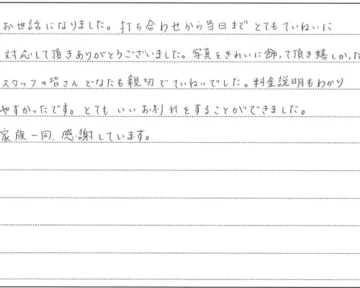 お世話になりました。打ち合わせから当日まで とてもていねいに
対応して頂きありがとうございました。写真をきれいに飾って頂き嬉しかった
スタッフの皆さんどなたも親切でていねいでした。料金説明もわかり
やすかったです。とても いい お別れをすることができました。
家族一同、感謝しています。